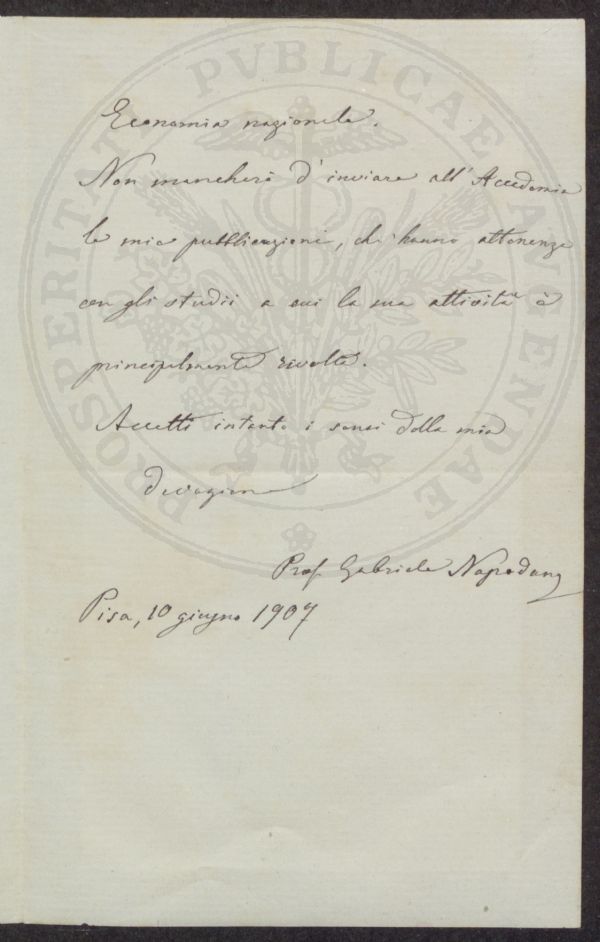 Economia nazionale.
Non mancherò d'inviare all'Accademia
le mie pubblicazioni, che hanno attenenza
con gli studii a cui la sua attività è
principalmente rivolta.
Accetti intanto i sensi della mia
devozione
Prof. Gabriele Napodano
Pisa, 10 giugno 1907
PROSPERITATI PVBLICAE AVGENDAE